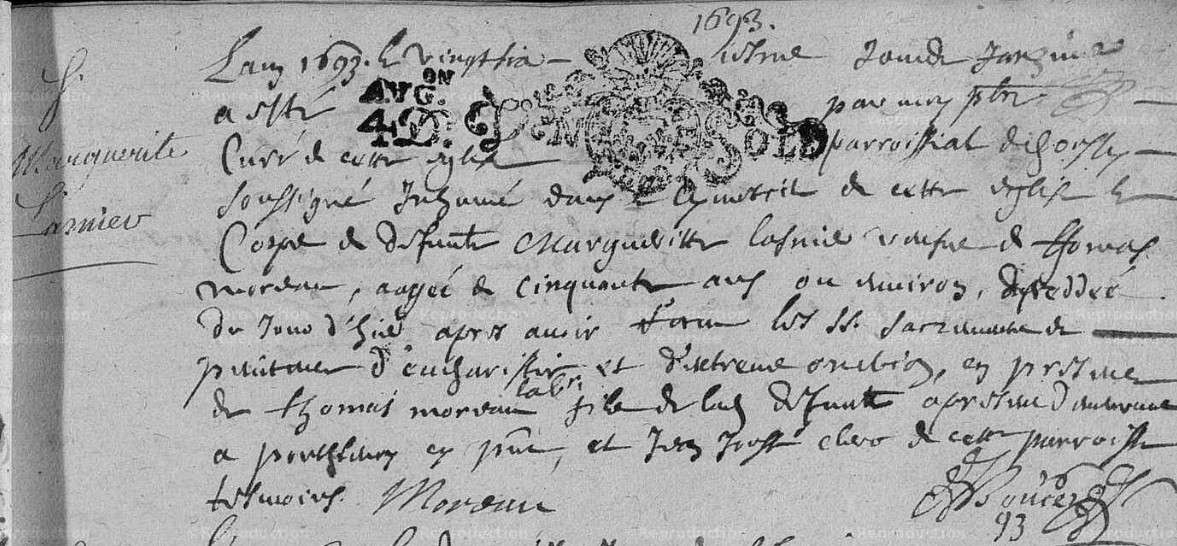 1693.
S.
Marguerite
Lasnier
L'an 1693. le vingtsix iesme Jour de Janvier
a esté par moy pbre
AVG.ON
4 D.
SOLD
Curé de cette eglise parroissial de
soussigné Inhumé dans le Cymetiere de cette eglise le
Corps de defunte Margueritte lasnie veufve de thomas
moreau, aagée de cinquante ans ou environ, decedée
du Jour d'hier apres avoir receu les SS. Sacrements de
penitence d'eucharistie et d'extreme onction, en presence
de thomas moreau lab. fils de lad. defunte
a en et Jean clerc de cette parroisse
tesmoins. Moreau
93